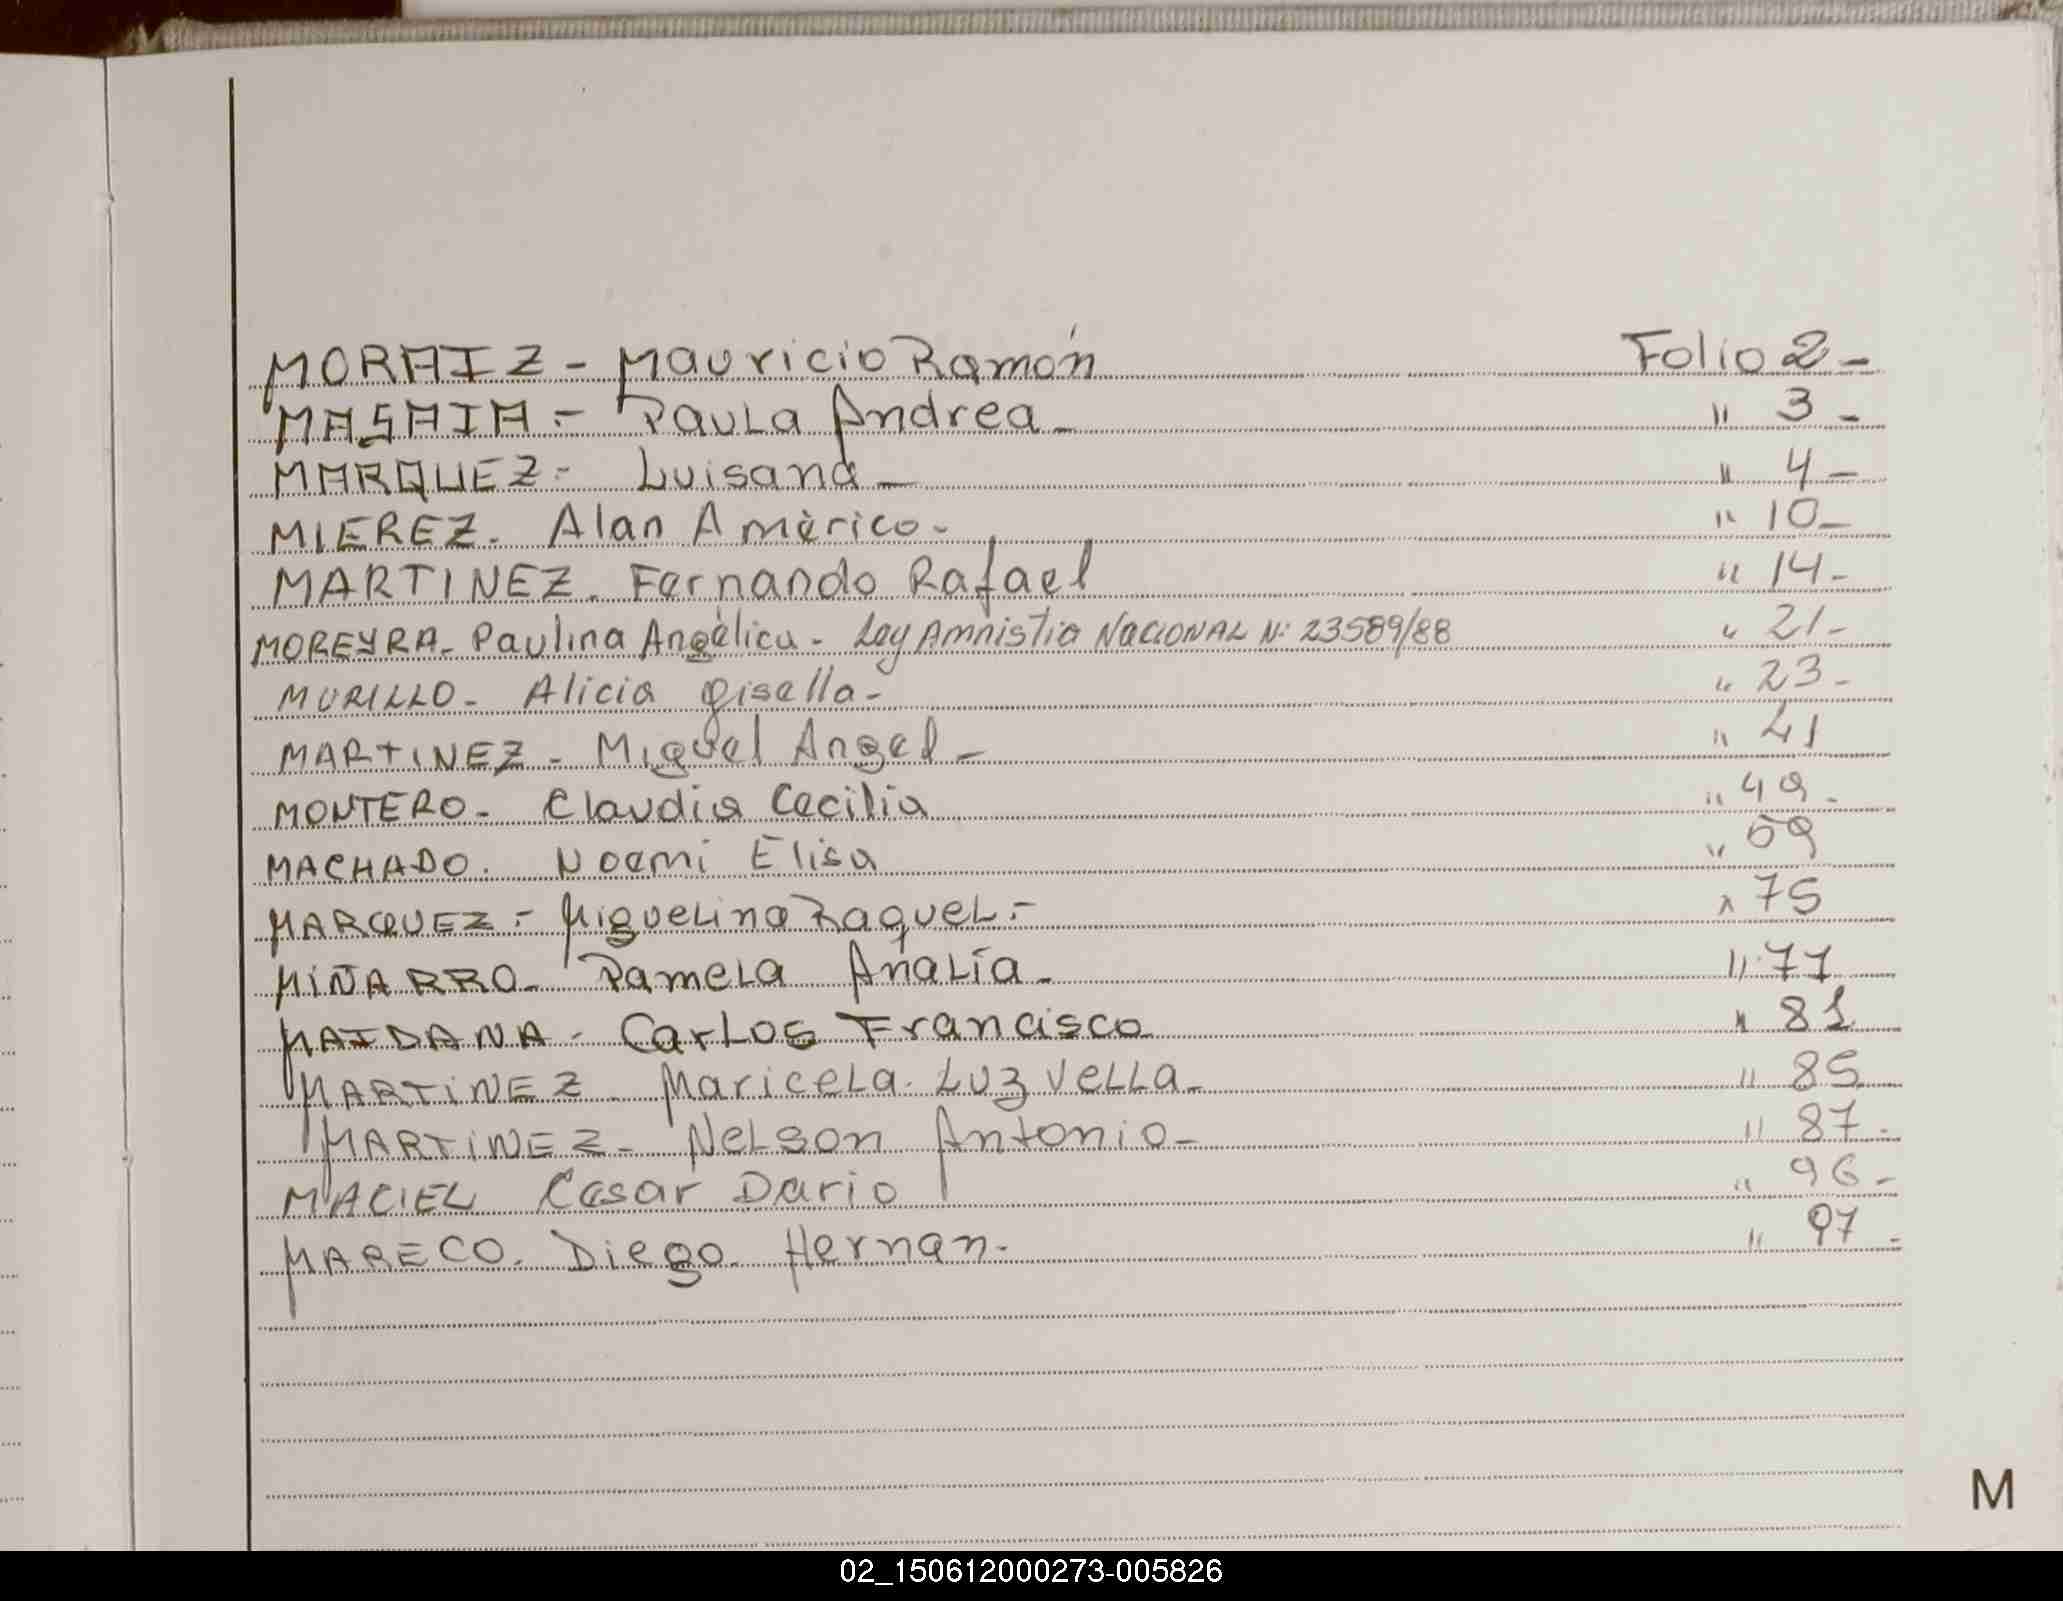 MORAIZ - Mauricio Ramón Folio 2 -
MASAIA - Paula Andrea - " 3 -
MARQUEZ - Luisana - " 4 -
MIEREZ. Alan Amèrico - " 10 -
MARTINEZ. Fernando Rafael " 14 -
MOREYRA - Paulina Angèlica - Ley Amnistia NACIONAL Nº 23589/88 " 21 -
MURILLO - Alicia Gisella - " 23 -
MARTINEZ - Miguel Angel - " 41
MONTERO - Claudia Cecilia " 49 -
MACHADO. Noemi Elisa " 59
MARQUEZ - Miguelina Raquel - " 75
MIÑARRO - Pamela Analía - " 77
MAIDANA - Carlos Francisco " 81
MARTINEZ - Maricela Luz Vella - " 85
MARTINEZ - Nelson Antonio - " 87 -
MACIEL Cesar Dario " 96 -
MARECO. Diego Hernan. " 97 -
M
02_150612000273-005826